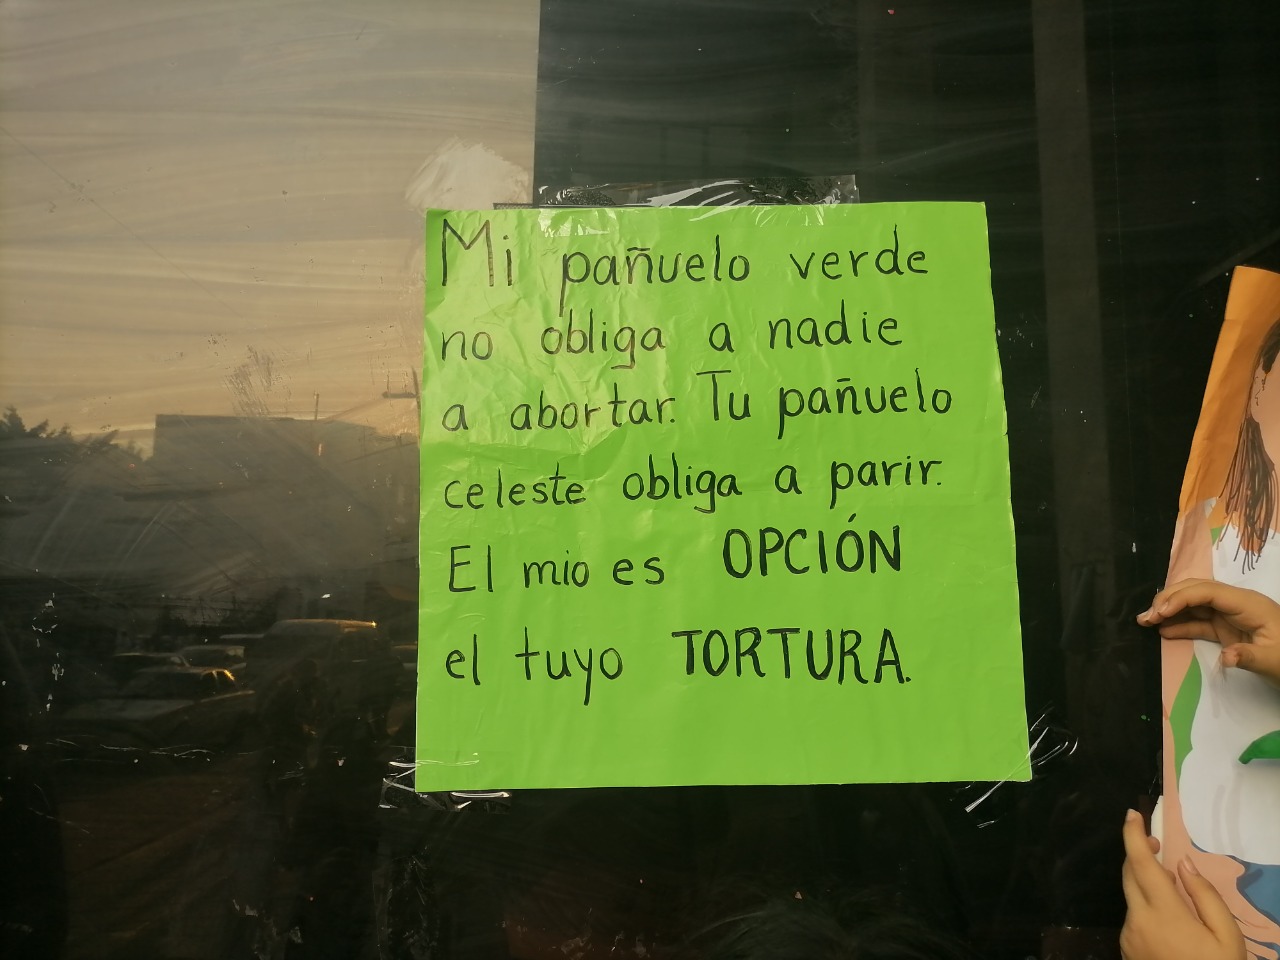 Mi pañuelo verde
no obliga a nadie
a abortar. Tu pañuelo
celeste obliga a parir.
El mio es OPCIÓN
el tuyo TORTURA.